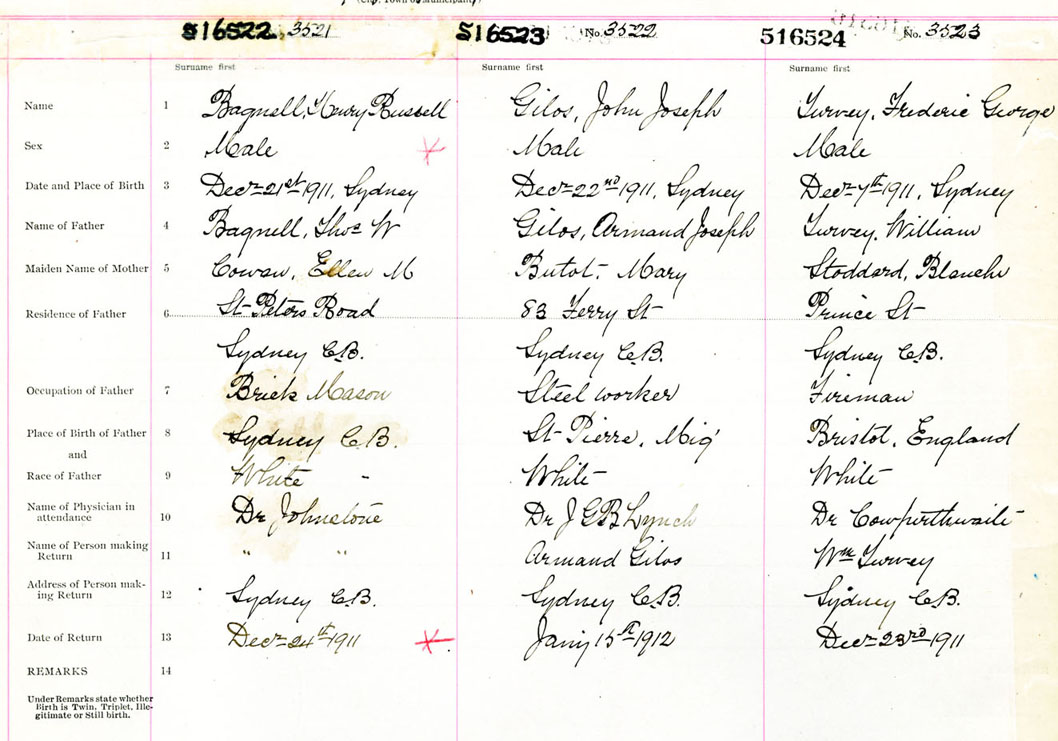 (City, Town or Municipality)
516522 3521 516523 No. 3522 516524 No. 3523
Surname first Surname first Surname first
Name 1 Bagnell, Henry Russell Gilos, John Joseph Turvey, Frederic George
Sex 2 Male Male Male
Date and Place of Birth 3 Decr 21st 1911, Sydney Decr 22nd 1911, Sydney Decr 7th 1911, Sydney
Name of Father 4 Bagnell, Thos W Gilos, Armand Joseph Turvey, William
Maiden Name of Mother 5 Cowan, Ellen M Butot, Mary Stoddard, Blanche
Residence of Father 6 St Peters Road 83 Ferry St Prince St
Sydney C.B. Sydney C.B. Sydney C.B.
Occupation of Father 7 Brick Mason Steel worker Fireman
Place of Birth of Father 8 Sydney C.B. St Pierre, Miq' Bristol, England
and
Race of Father 9 White White White
Name of Physician in
attendance 10 Dr Johnstone Dr J G B Lynch Dr Cowperthwaite
Name of Person making
Return 11 " " Armand Gilos Wm Turvey
Address of Person mak-
ing Return 12 Sydney C.B. Sydney C.B. Sydney C.B.
Date of Return 13 Decr 24th 1911 Jany 15th 1912 Decr 23rd 1911
REMARKS 14
Under Remarks state whether
Birth is Twin, Triplet, Ille-
gitimate or Still birth.